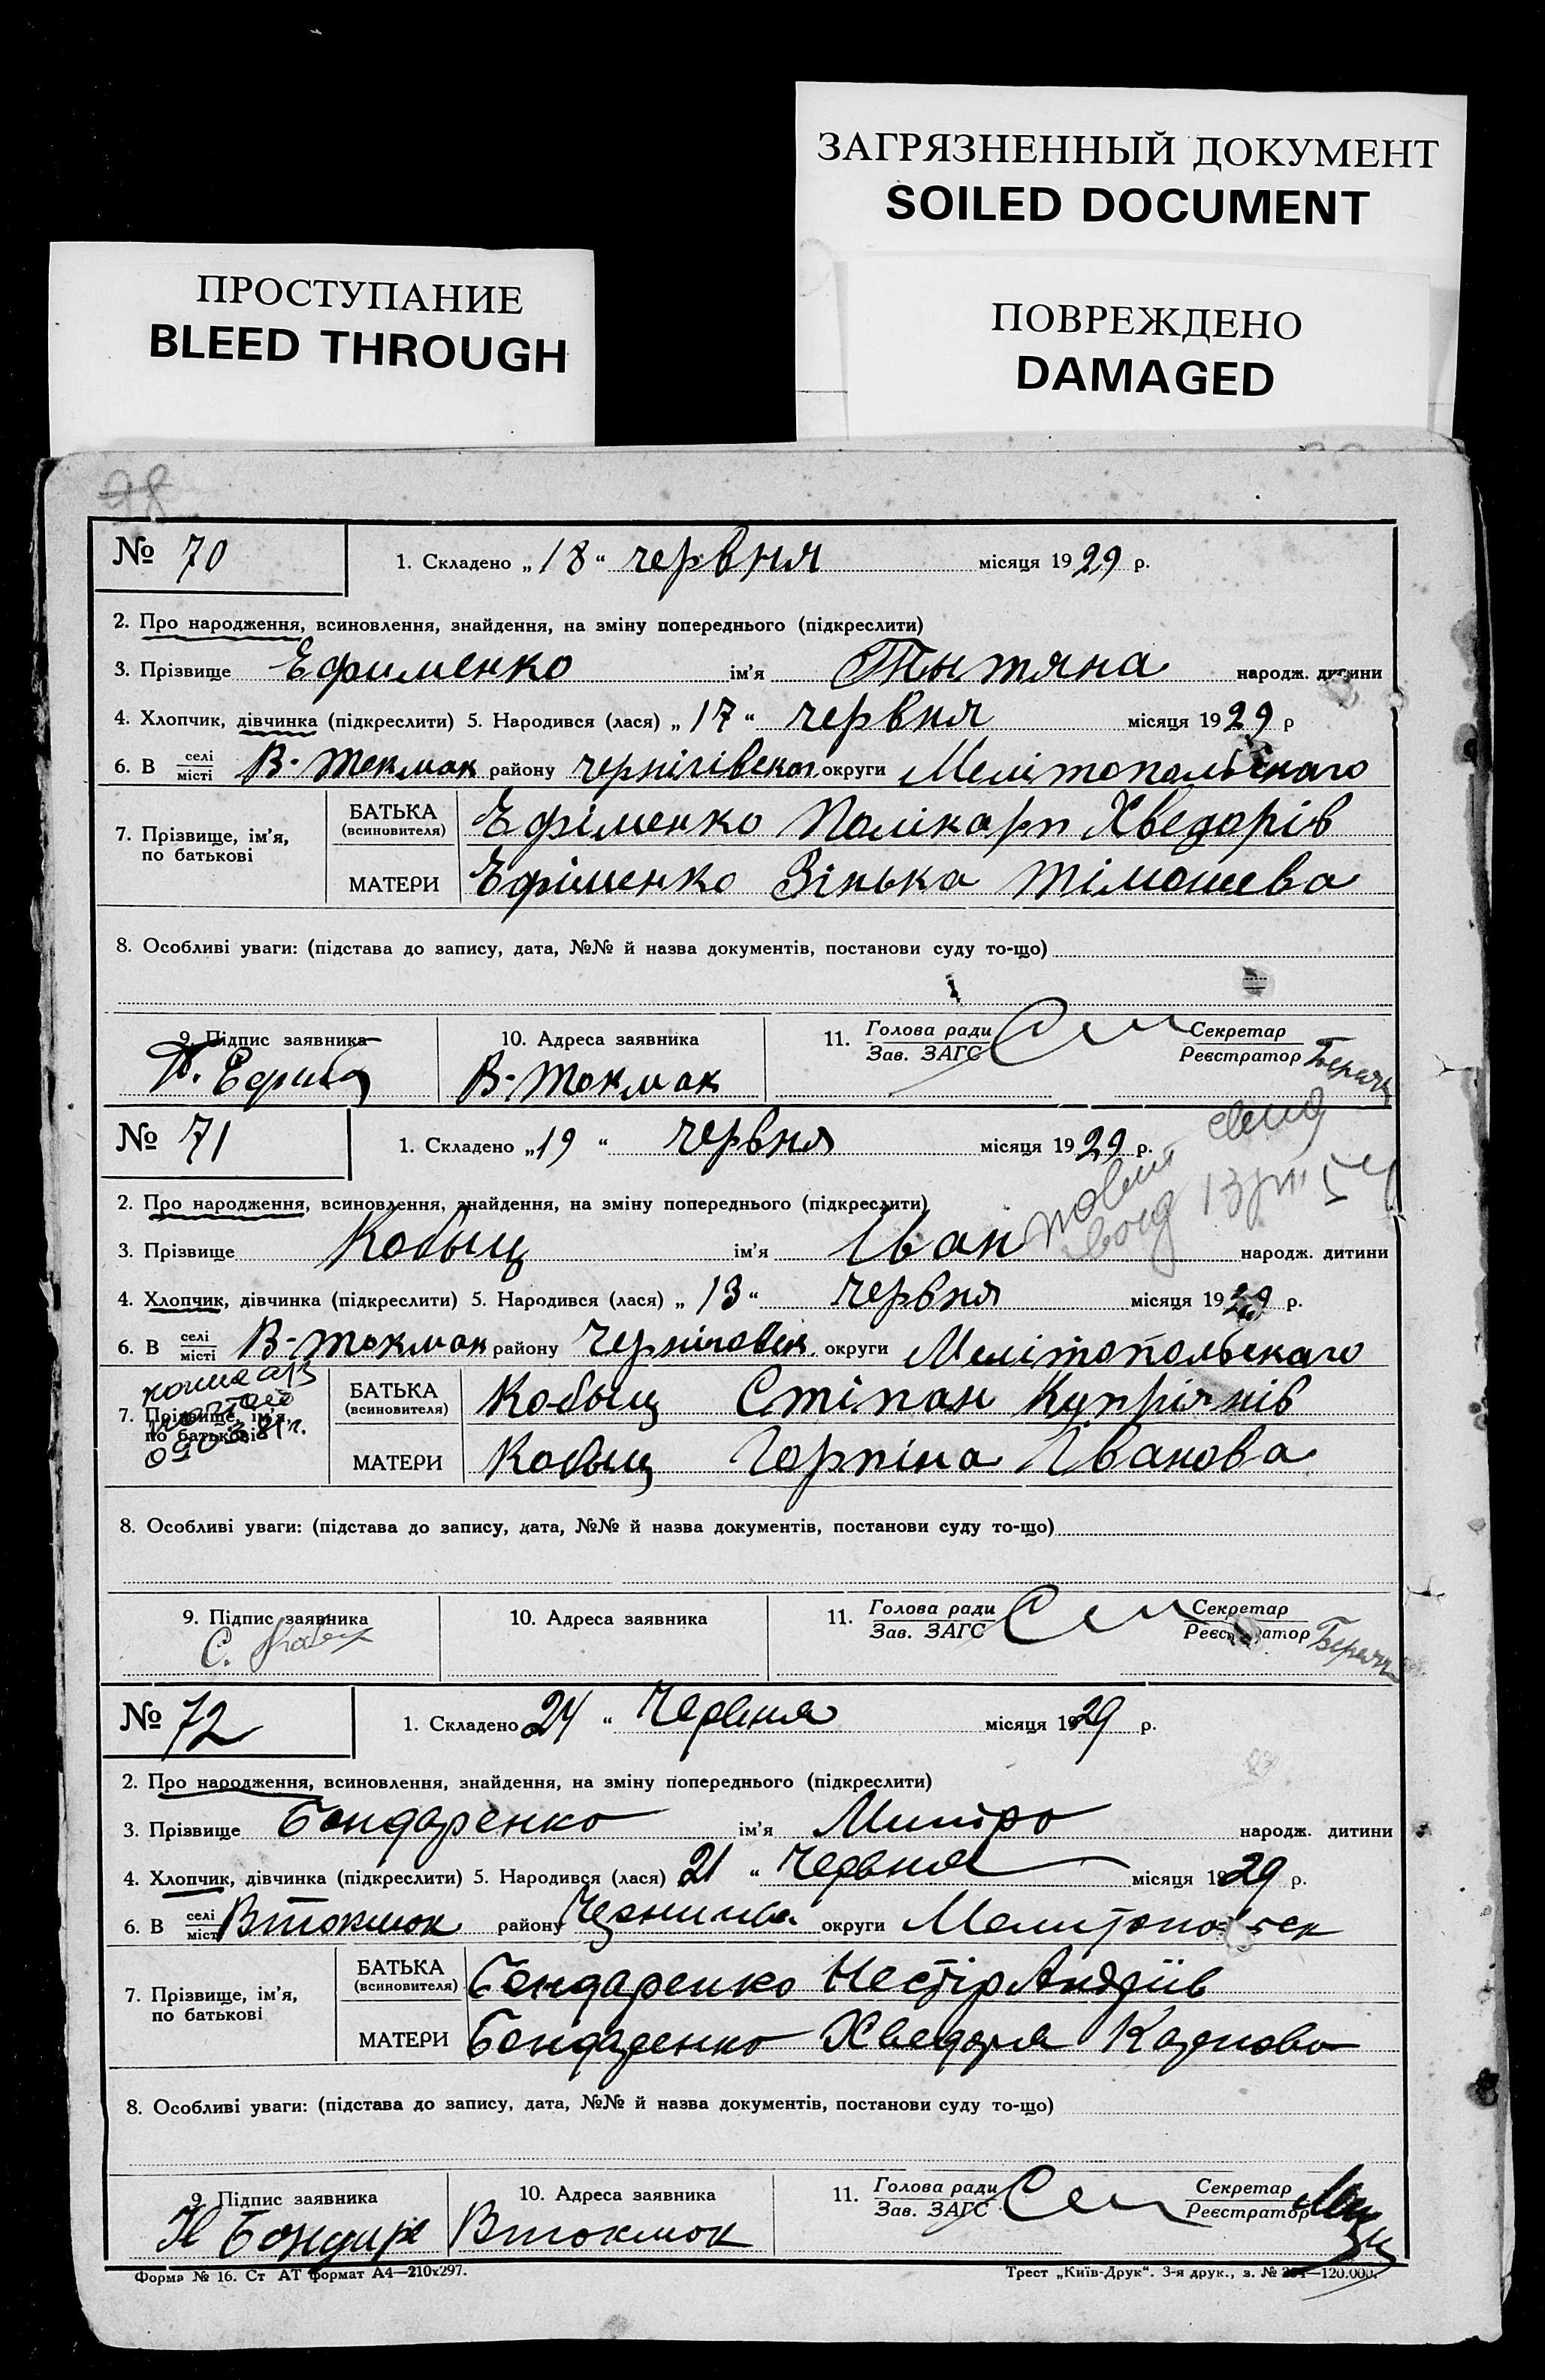 ЗАГРЯЗНЕННЫЙ ДОКУМЕНТ
SOILED DOCUMENT
ПРОСТУПАНИЕ
BLEED THROUGH
ПОВРЕЖДЕНО
DAMAGED
98
№ 70 1. Складено „18“ червня місяця 1929 р.
2. Про народження, всиновлення, знайдення, на зміну попереднього (підкреслити)
3. Прізвище Ефименко ім'я Тытяна народж. дитини
4. Хлопчик, дівчинка (підкреслити) 5. Народився (лася) „17“ червня місяця 1929 р
6. В селі місті В-Текмак району округи Мелітопольскаго
7. Прізвище, ім'я, по батькові
БАТЬКА (всиновителя) Ефіменко Полікарп Хведорів
МАТЕРИ Ефіменко Зінька Тімошева
8. Особливі уваги: (підстава до запису, дата, №№ й назва документів, постанови суду то-що)
9. Підпис заявника 10. Адреса заявника 11. Голова ради Зав. ЗАГС Секретар Реєстратор
В-Токмак
№ 71 1. Складено „19“ червня місяця 1929 р.
2. Про народження, всиновлення, знайдення, на зміну попереднього (підкреслити)
3. Прізвище Кобыщ ім'я Іван народж. дитини
4. Хлопчик, дівчинка (підкреслити) 5. Народився (лася) „13“ червня місяця 1929 р.
6. В селі місті В-Токмак району округи Мелітопольскаго
7. Прізвище, ім'я, по батькові
БАТЬКА (всиновителя) Кобыщ Стіпан Купріянів
МАТЕРИ Кобыщ Горпіна Іванова
8. Особливі уваги: (підстава до запису, дата, №№ й назва документів, постанови суду то-що)
9. Підпис заявника 10. Адреса заявника 11. Голова ради Зав. ЗАГС Секретар Реєстратор
№ 72 1. Складено 24 “ Червня місяця 1929 р.
2. Про народження, всиновлення, знайдення, на зміну попереднього (підкреслити)
3. Прізвище Бондаренко ім'я народж. дитини
4. Хлопчик, дівчинка (підкреслити) 5. Народився (лася) 21 “ Червня місяця 1929 р.
6. В селі місті Втокмок району округи
7. Прізвище, ім'я, по батькові
БАТЬКА (всиновителя) Бондаренко Нестір Андріїв
МАТЕРИ Бондаренко Хведоря Карпова
8. Особливі уваги: (підстава до запису, дата, №№ й назва документів, постанови суду то-що)
9. Підпис заявника 10. Адреса заявника 11. Голова ради Зав. ЗАГС Секретар Реєстратор
Н Бондар Втокмок
Форма № 16. Ст АТ формат А4—210х297. Трест „Київ-Друк“. 3-я друк., з. № —120.000.